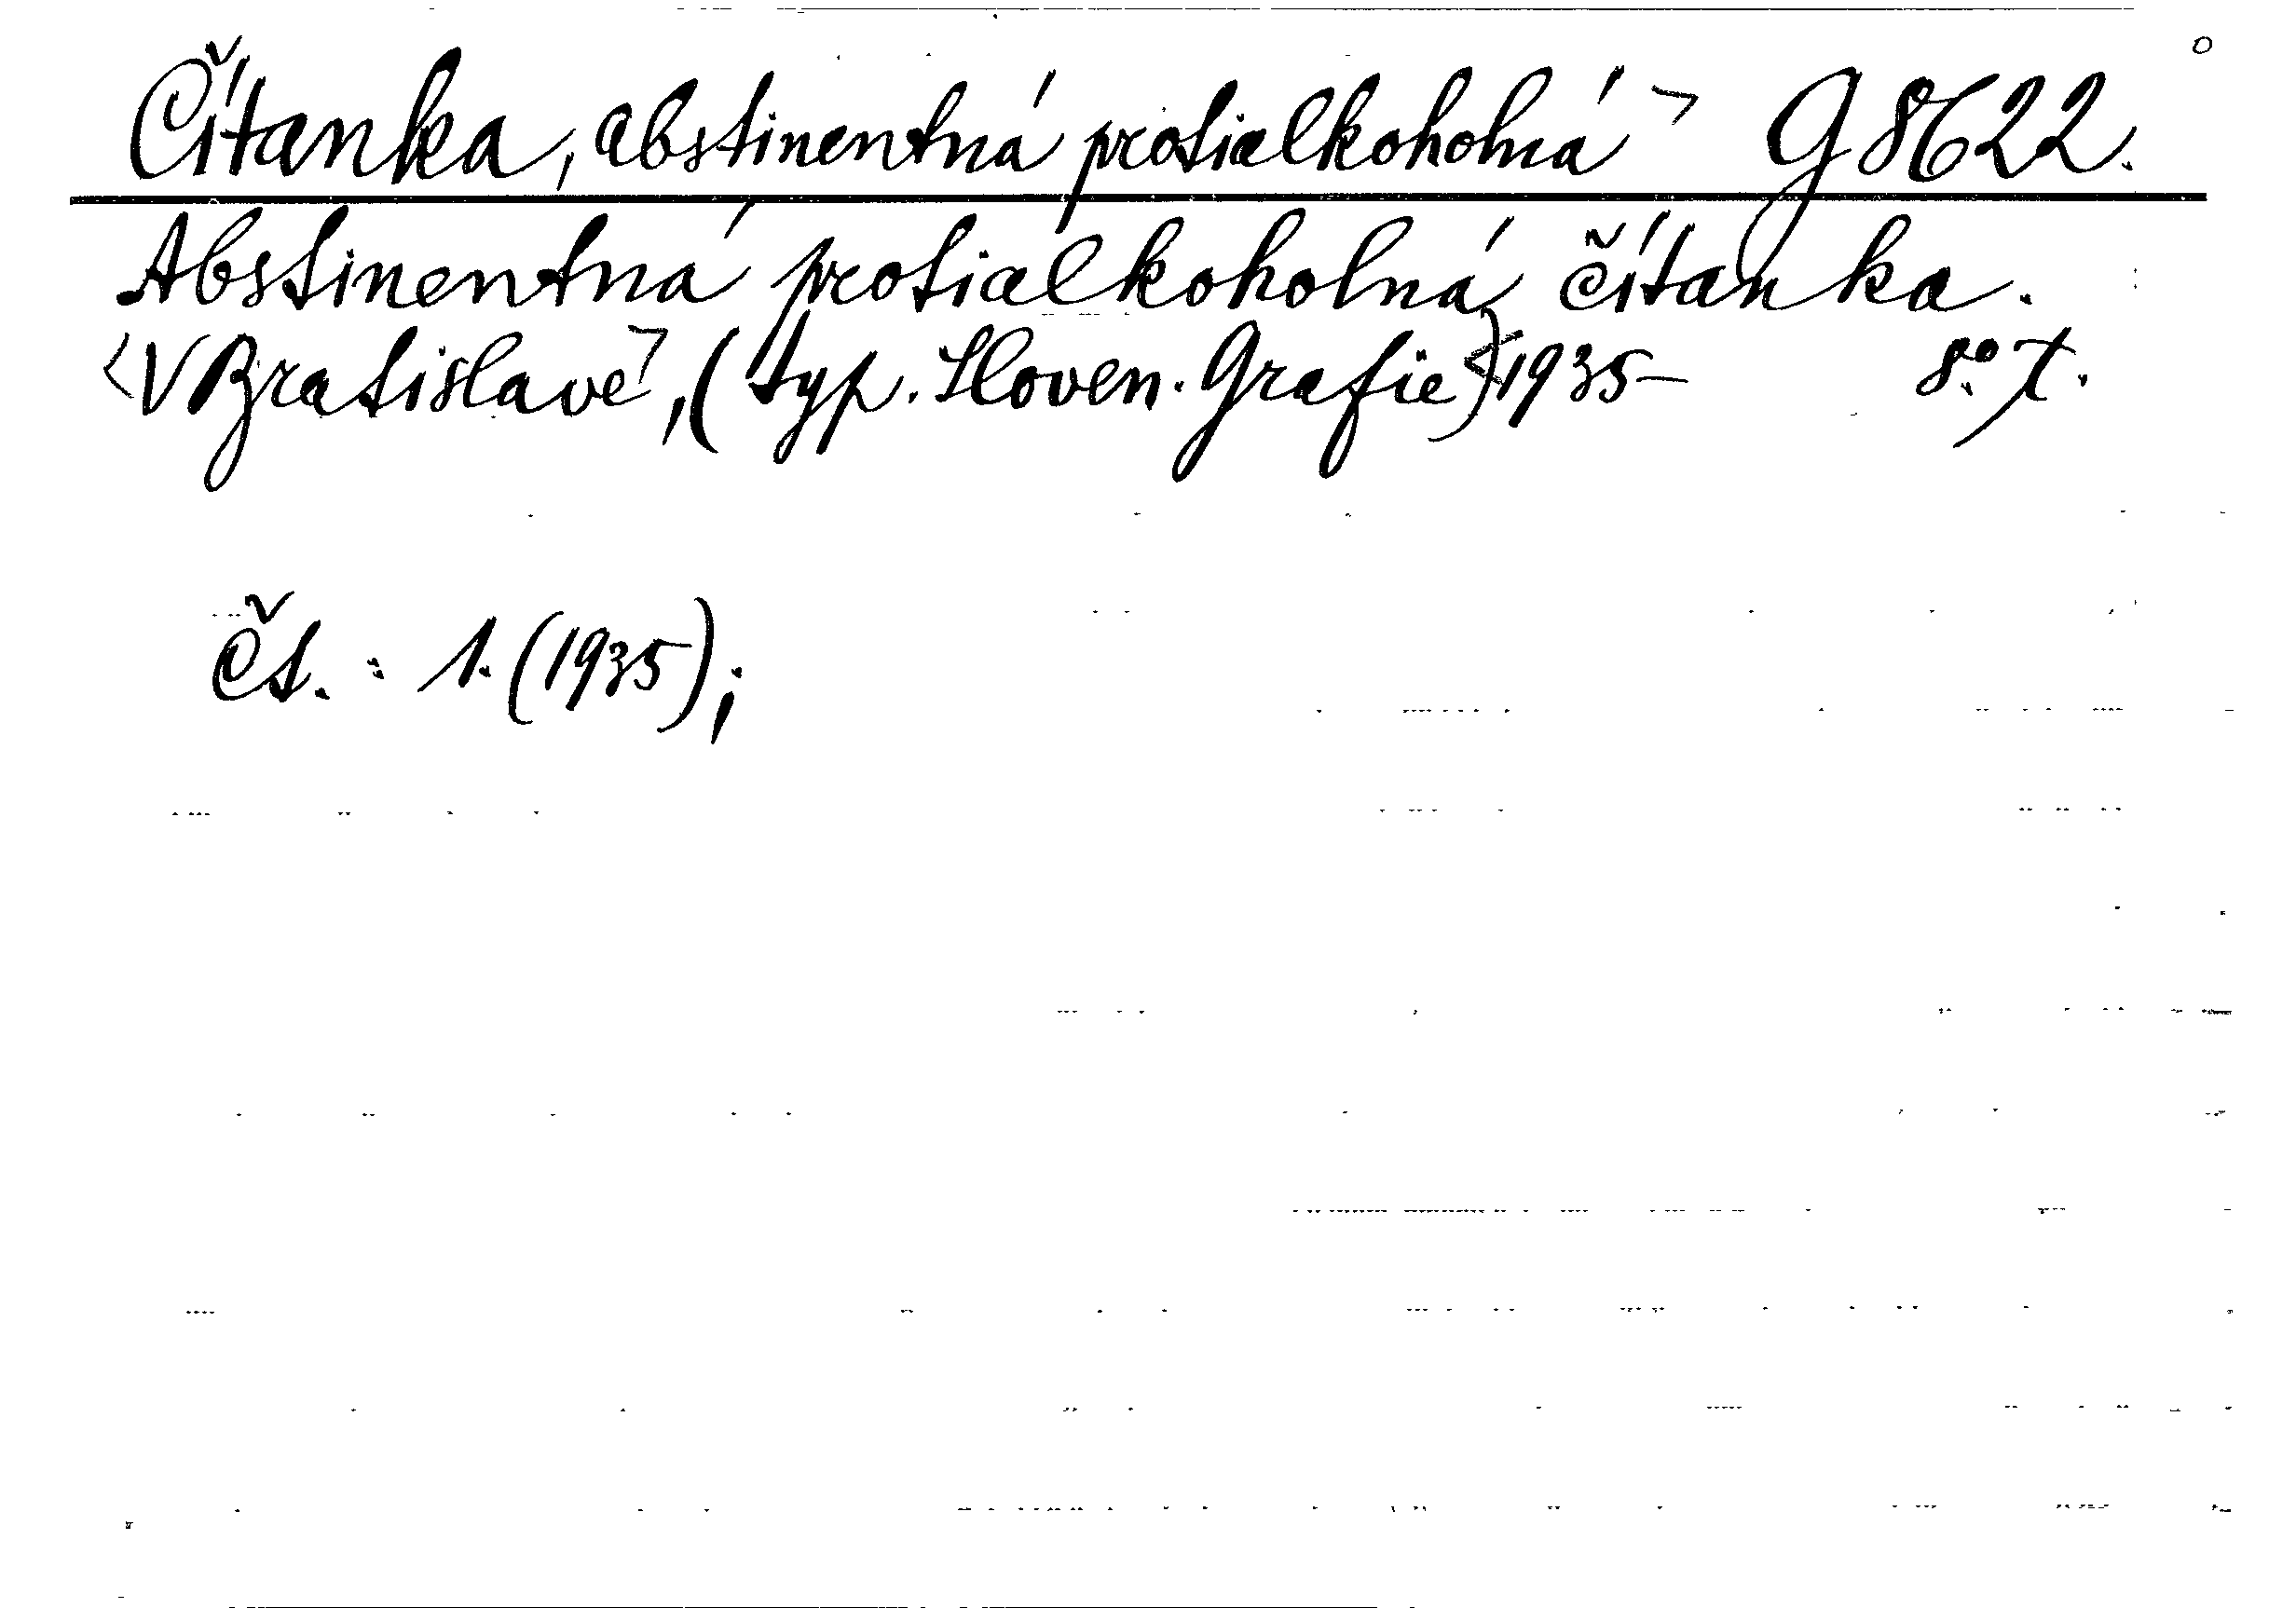 Čítanka, abstinentná protialkoholná ¬ G 8622.
Abstinentná protialkoholná čítanka.
<V Bratislavě>, (typ. Sloven. Grafie) <1935— 8° X.
Čs. : 1. (1935);